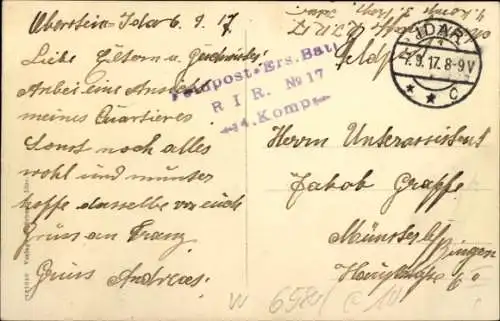 Oberstein-Idar 6. 9. 17
Liebe Eltern u. Geschwister!
Anbei eine Ansicht
meines Quartieres
Sonst noch alles
wohl und munter
hoffe dasselbe von euch
Gruss an Franz
Gruss Andreas.
Feldpost Ers. Batl
R I R. No 17
4. Komp.
IDAR
7.9.17.8-9V
* * c
Feldpost
Herrn Unterassistent
Jakob Grappe
Münster b/
Bingen
W 6581